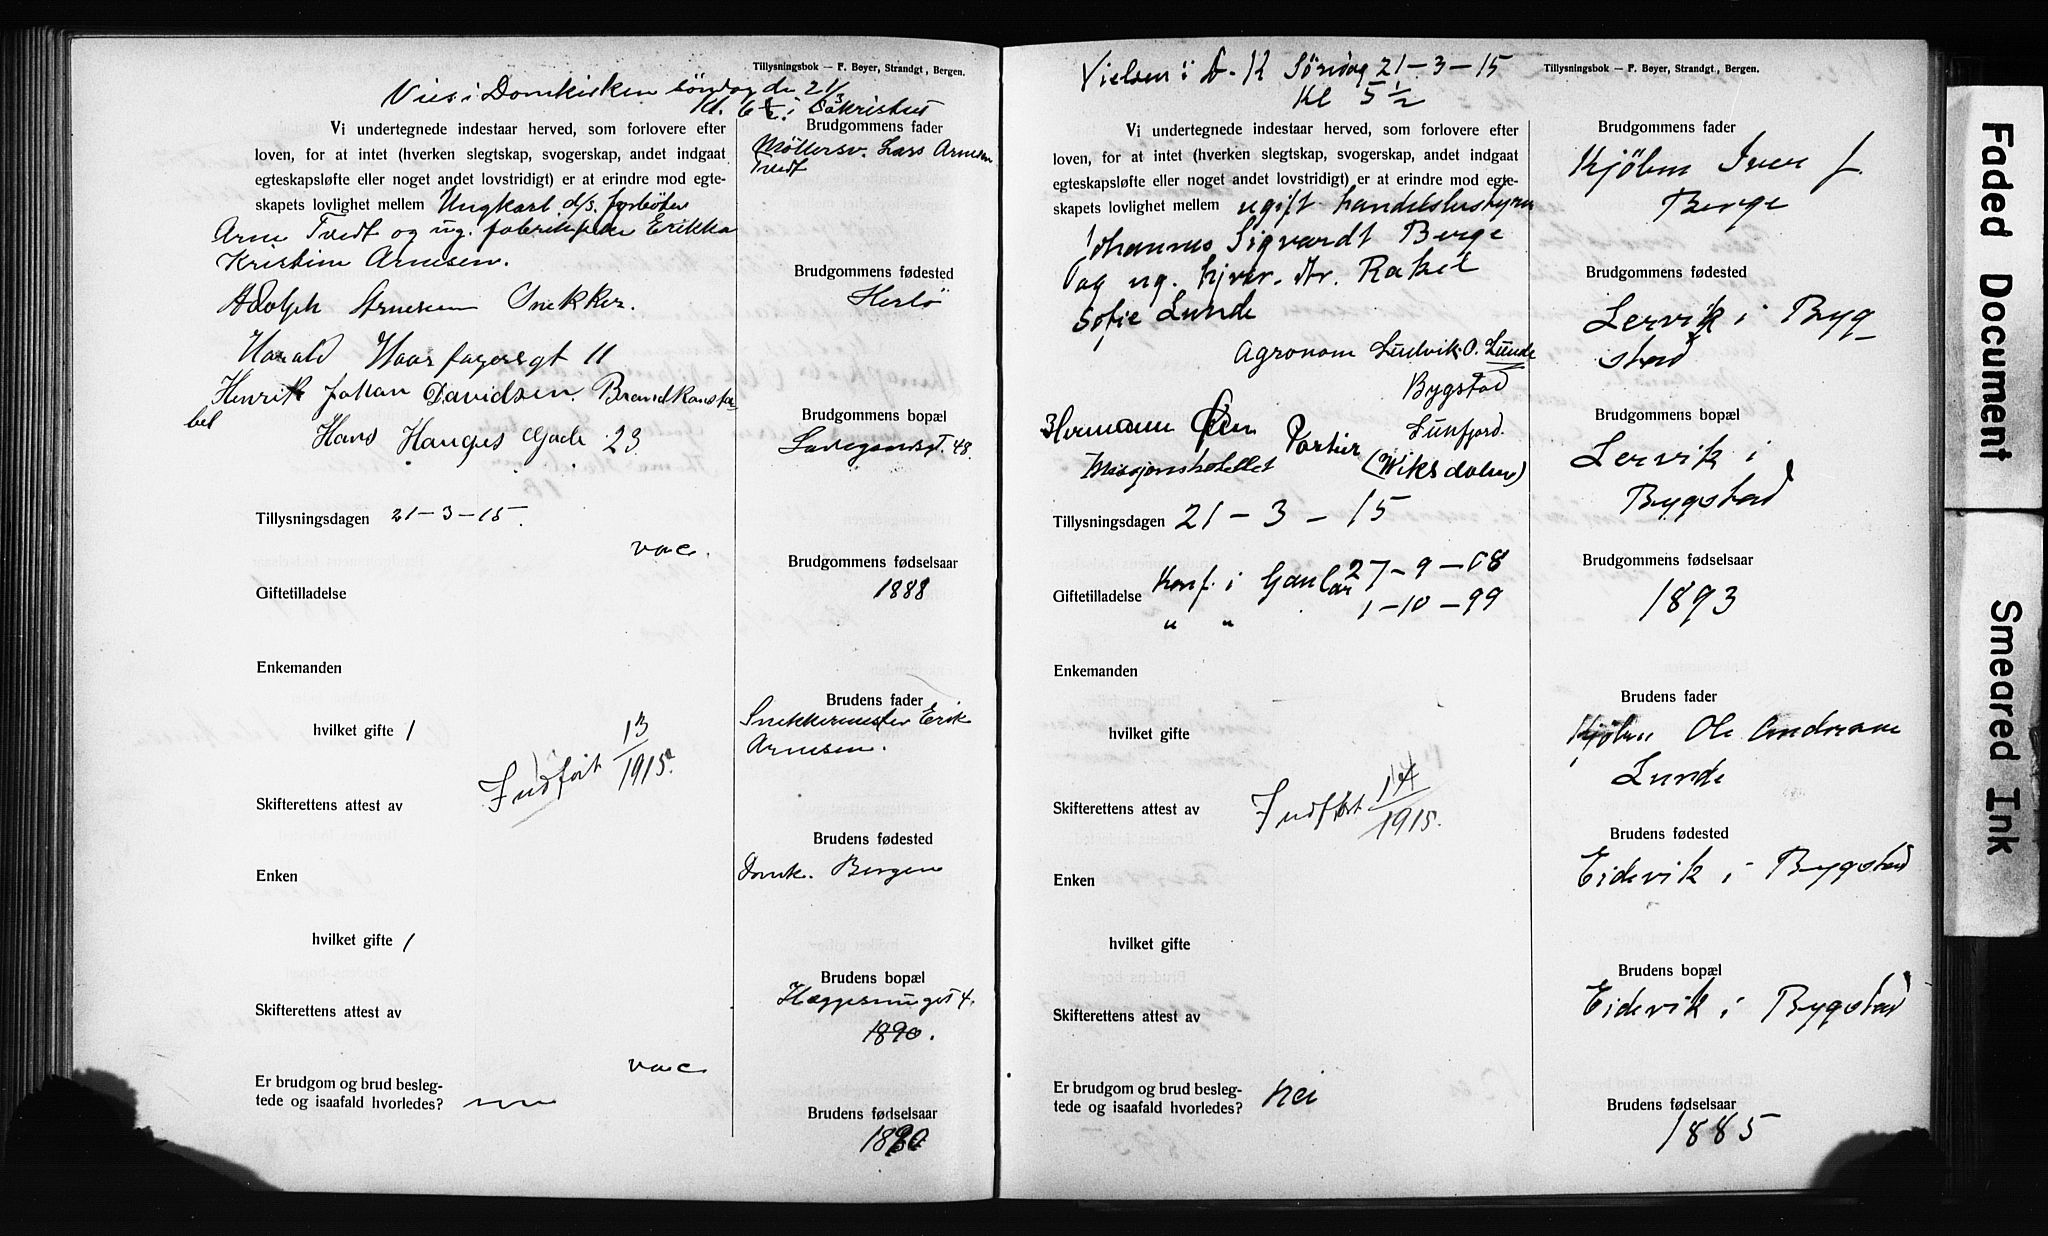 Tillysningsbok — F. Beyer, Strandgt, Bergen.
Vies i Domkirken søndag den 21/3
Kl. 6 i Sakristiet
Vi undertegnede indestaar herved, som forlovere efter
loven, for at intet (hverken slegtskap, svogerskap, andet indgaat
egteskapsløfte eller noget andet lovstridigt) er at erindre mod egte-
skapets lovlighet mellem Ungkarl d/s. fyrbøter
Arne Tvedt og ug. Erikka
Kristine Arnesen.
Adolph Arnesen Snekker.
Harald Haarfagersgt 11
Henrik Johan Davidsen. Brandkonsta-
bel
Hans Hauges Gade 23
Tillysningsdagen 21-3-15.
vac.
Giftetilladelse
Enkemanden
hvilket gifte 1
Indført 13/1915.
Skifterettens attest av
Enken
hvilket gifte 1
Skifterettens attest av
vac
Er brudgom og brud besleg-
tede og isaafald hvorledes?
Brudgommens fader
Møllersv. Lars Arnesen
Tvedt
Brudgommens fødested
Herlö
Brudgommens bopæl
Ladegaardsgt. 48
Brudgommens fødselsaar
1888
Brudens fader
Snekkermester Erik
Arnesen.
Brudens fødested
Domk. Bergen
Brudens bopæl
4.
1890.
Brudens fødselsaar
1890
Tillysningsbok — F. Beyer, Strandgt., Bergen.
Vielsen i D. K Söndag 21-3-15
Kl 5 1/2
Vi undertegnede indestaar herved, som forlovere efter
loven, for at intet (hverken slegtskap, svogerskap, andet indgaat
egteskapsløfte eller noget andet lovstridigt) er at erindre mod egte-
skapets lovlighet mellem ugift handelsbestyrer
Johannes Sigvardt Berge
og ug. Rakel
Sofie Lunde
Agronom Ludvik O. Lunde
Bygstad
Hermann Øen Portier Sunfjord.
Missjonshotellet (Wiksdalen)
Tillysningsdagen 21-3-15
Giftetilladelse Konf. i Gaular 27-9-08
" " 1-10-99
Enkemanden
hvilket gifte
Indført 14/1915.
Skifterettens attest av
Enken
hvilket gifte
Skifterettens attest av
Er brudgom og brud besleg-
tede og isaafald hvorledes? Nei
Brudgommens fader
Kjöbm Iver J.
Berge
Brudgommens fødested
Lervik i Byg
stad
Brudgommens bopæl
Lervik i
Bygstad
Brudgommens fødselsaar
1893
Brudens fader
Kjöbm Ole Andreas
Lunde
Brudens fødested
Eidevik i Bygstad
Brudens bopæl
Eidevik i Bygstad
Brudens fødselsaar
1885
Faded Document
Smeared Ink